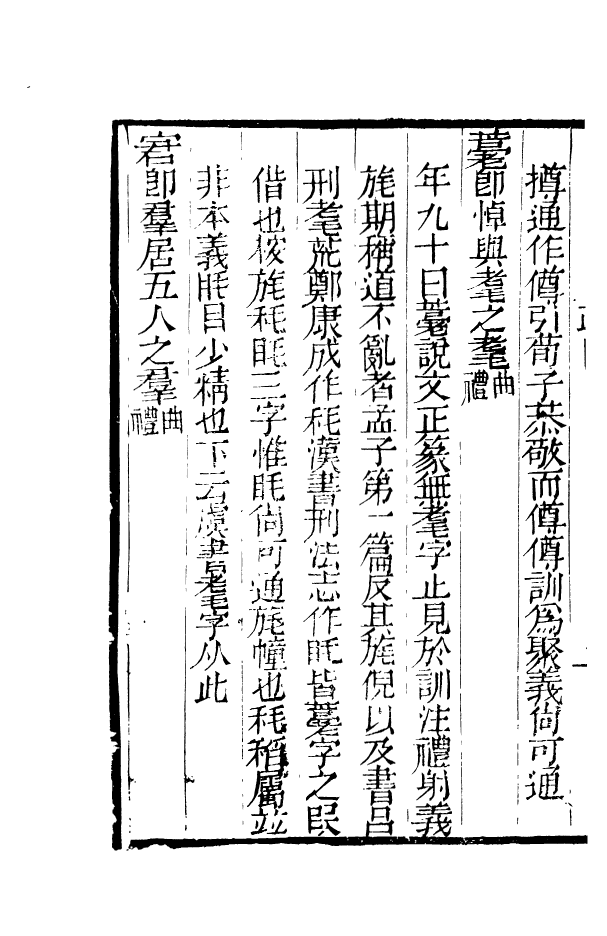 撙通作僔引荀子恭敬而僔僔訓爲聚義尙可通
薹卽悼與耄之耄曲禮
年九十曰薹說文正篆無耄字止見於訓注禮射義
旄期稱道不亂者孟子第一篇反其旄倪以及書呂
刑耄荒鄭康成作秏漢書刑法志作眊皆薹字之叚
借也核旄秏眊三字惟眊尙可通旄幢也秏稻屬竝
非本義眊目少精也下云虞書耄字从此
宭卽羣居五人之羣曲禮